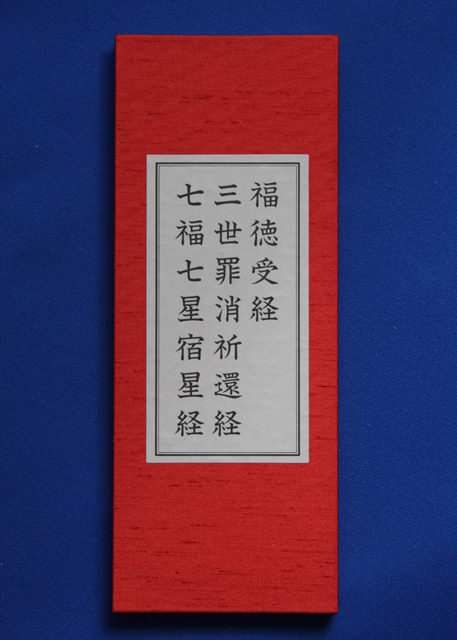 福徳受経
三世罪消祈還経
七福七星宿星経